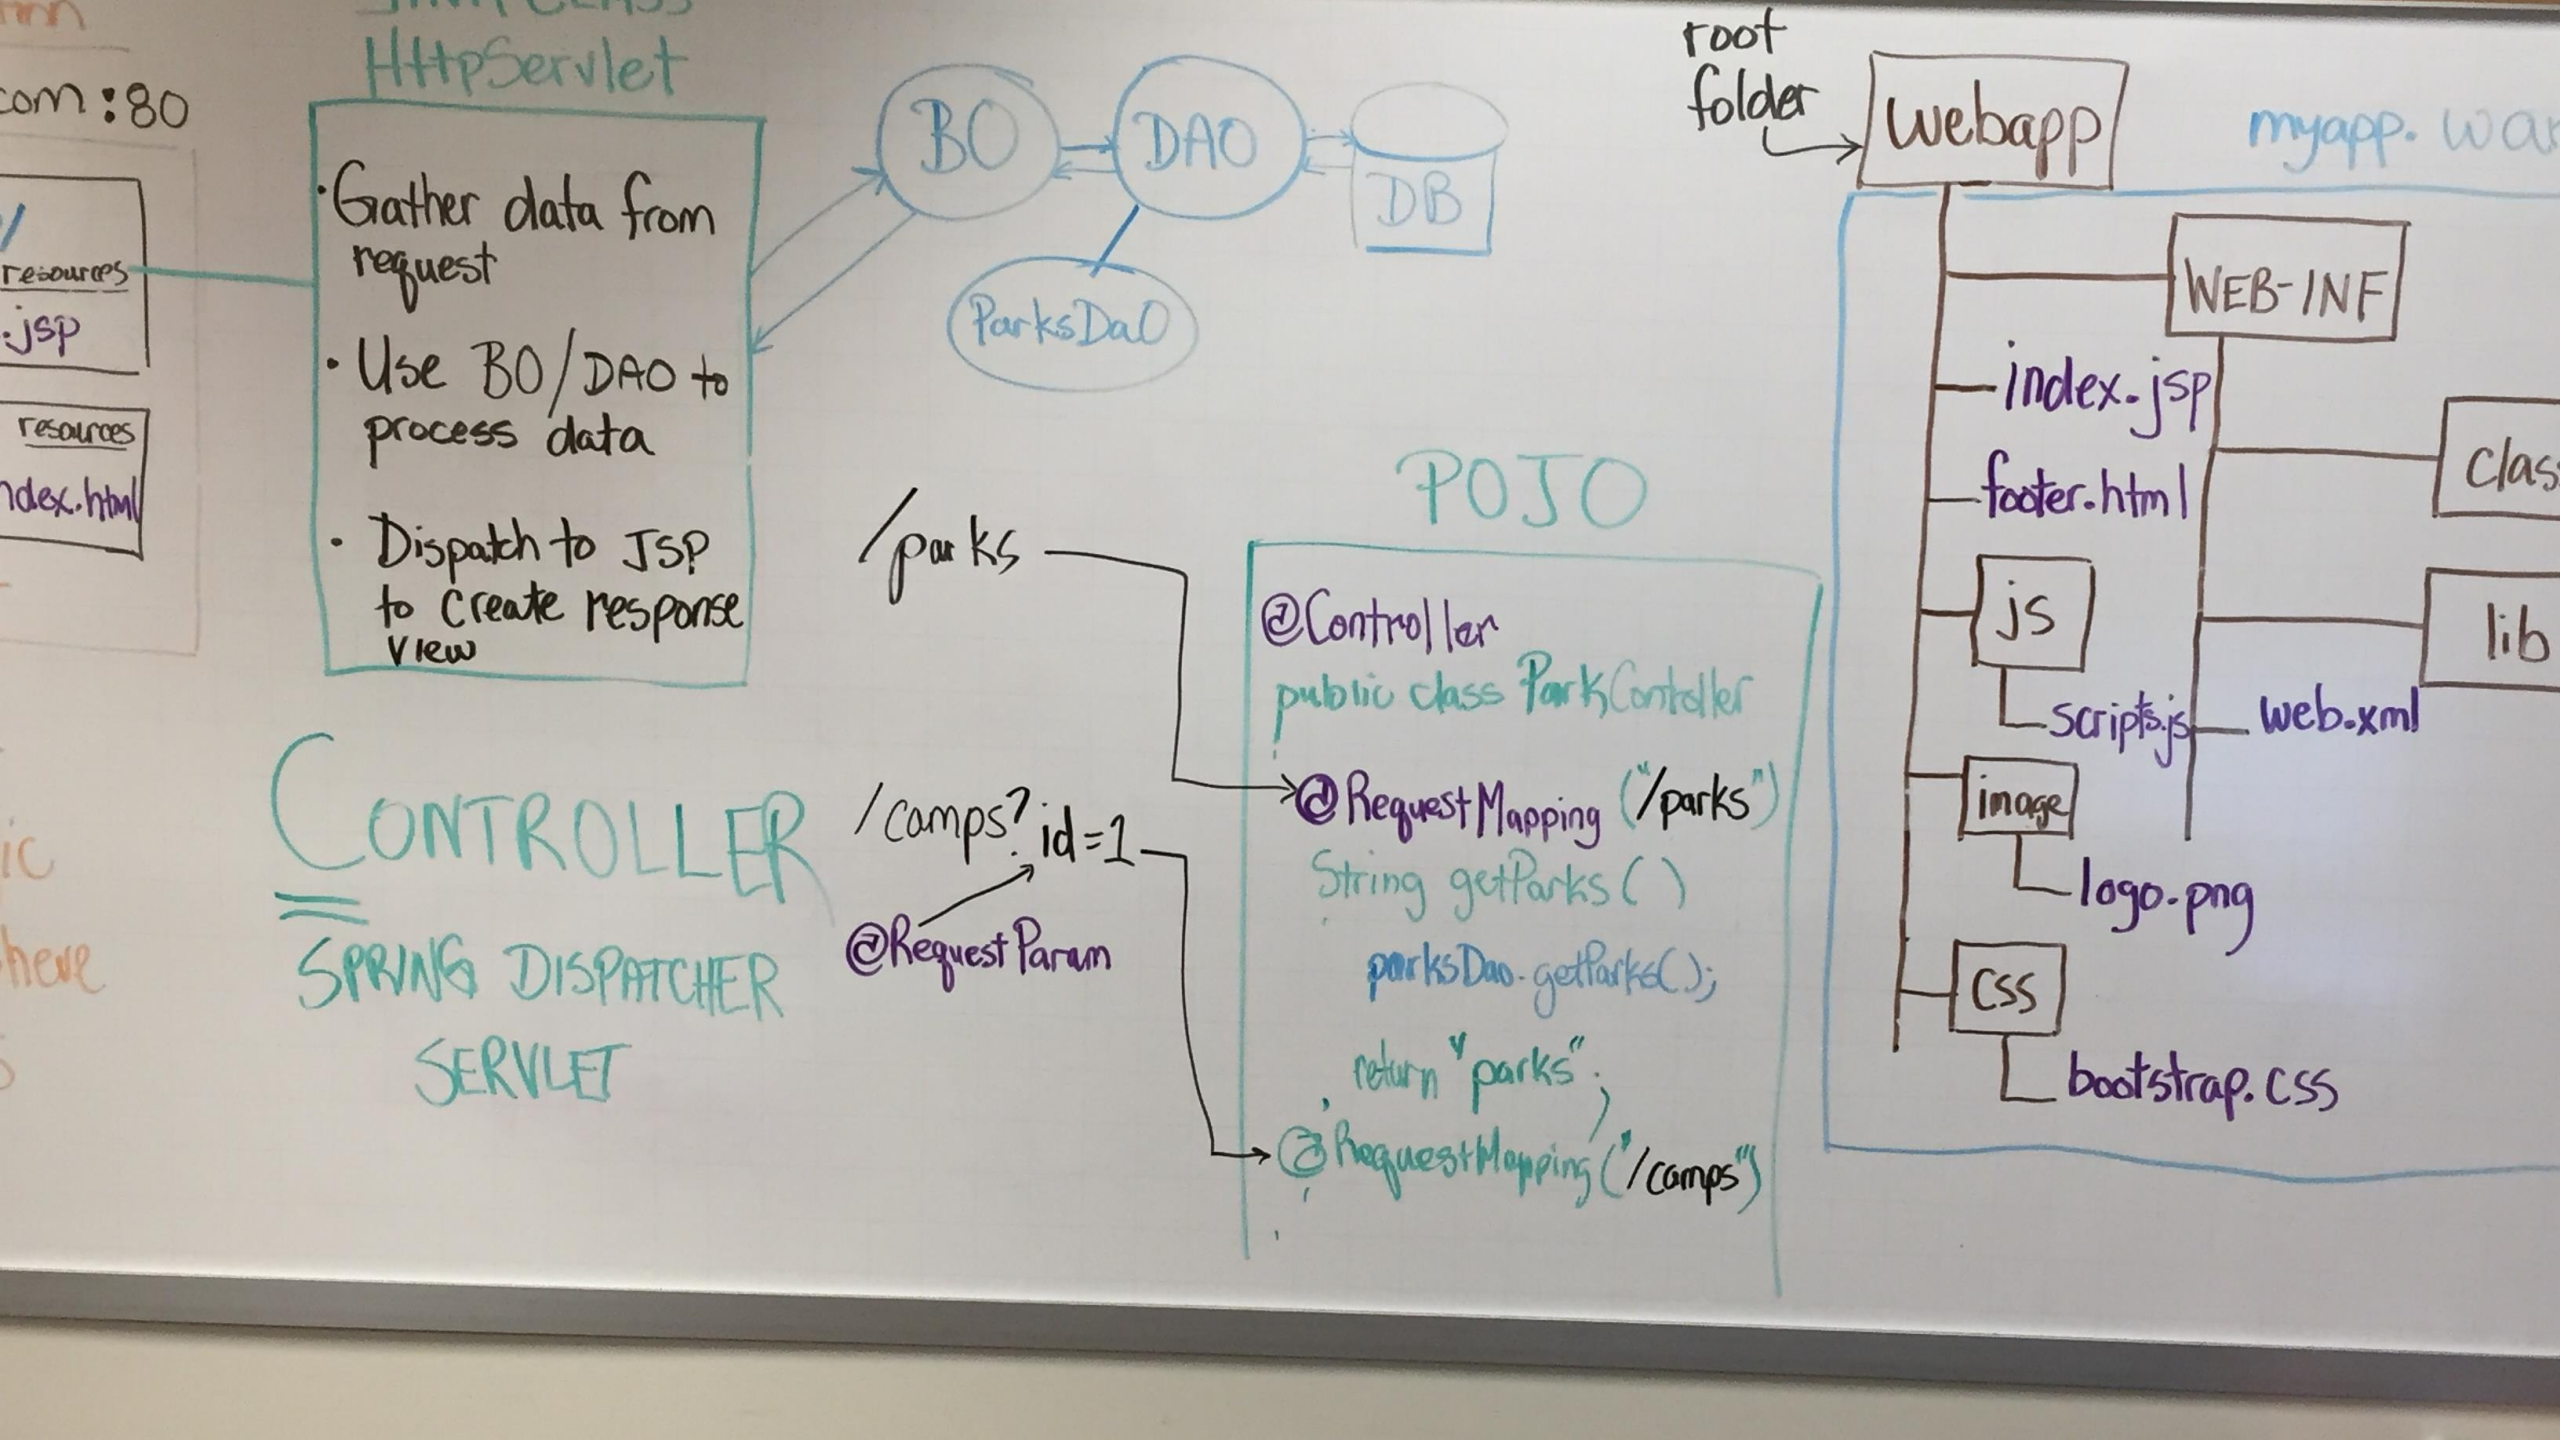 com:80
resources
.jsp
resources
ndex.html
ic
here
HttpServlet
• Gather data from
request
• Use BO/DAO to
process data
• Dispatch to JSP
to create response
view
CONTROLLER
SPRING DISPATCHER
SERVLET
BO
DAO
DB
ParksDaO
/parks
/camps?id=1
@RequestParam
POJO
@Controller
public class ParkContoller
@RequestMapping ("/parks")
String getParks ( )
parksDao.getParks();
return "parks";
@RequestMapping ("/camps")
root
folder
webapp
myapp.war
WEB-INF
index.jsp
footer.html
clas
js
lib
scripts.js
web.xml
image
logo.png
css
bootstrap.css